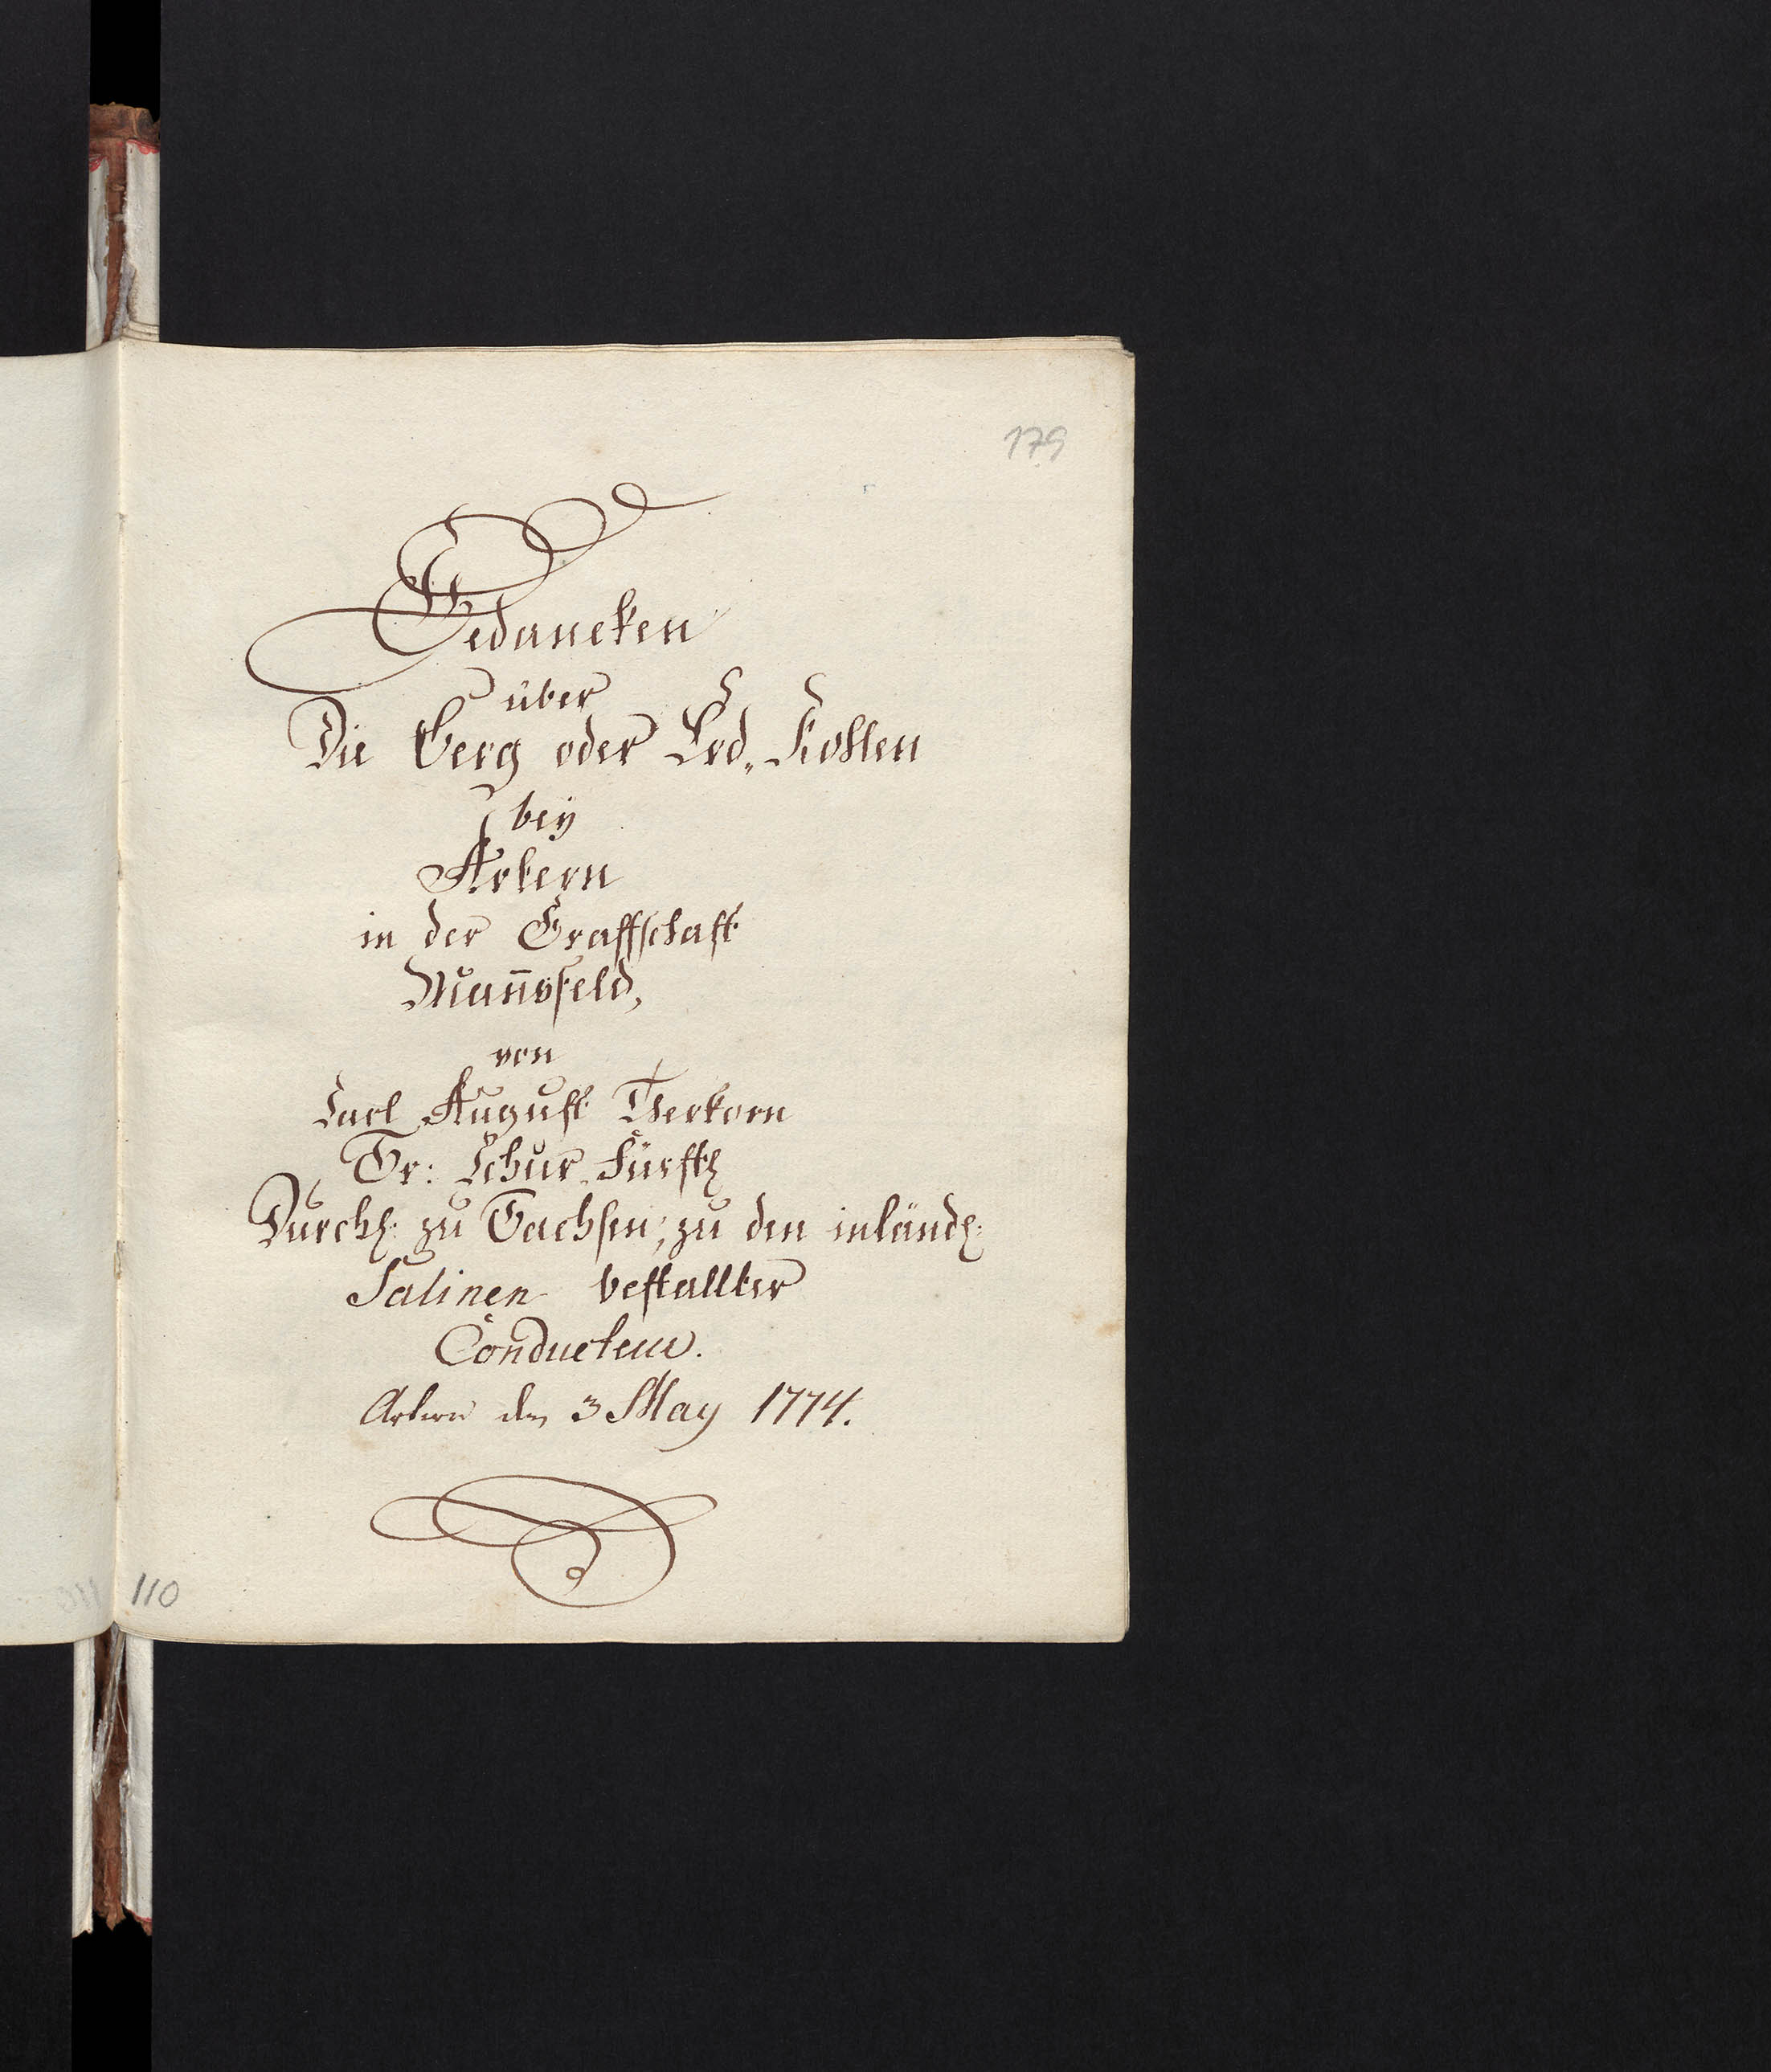 179
Gedancken
über
Die Berg oder Erd-Kohlen
bey
Artern
in der Graffschaft
Mañsfeld,
von
Carl August
Sr: Chur-Fürstl
Durchl: zu Sachsen, zu den inländ:
Salinen bestallter
Conducteur.
Artern den 3 May 1774.
110